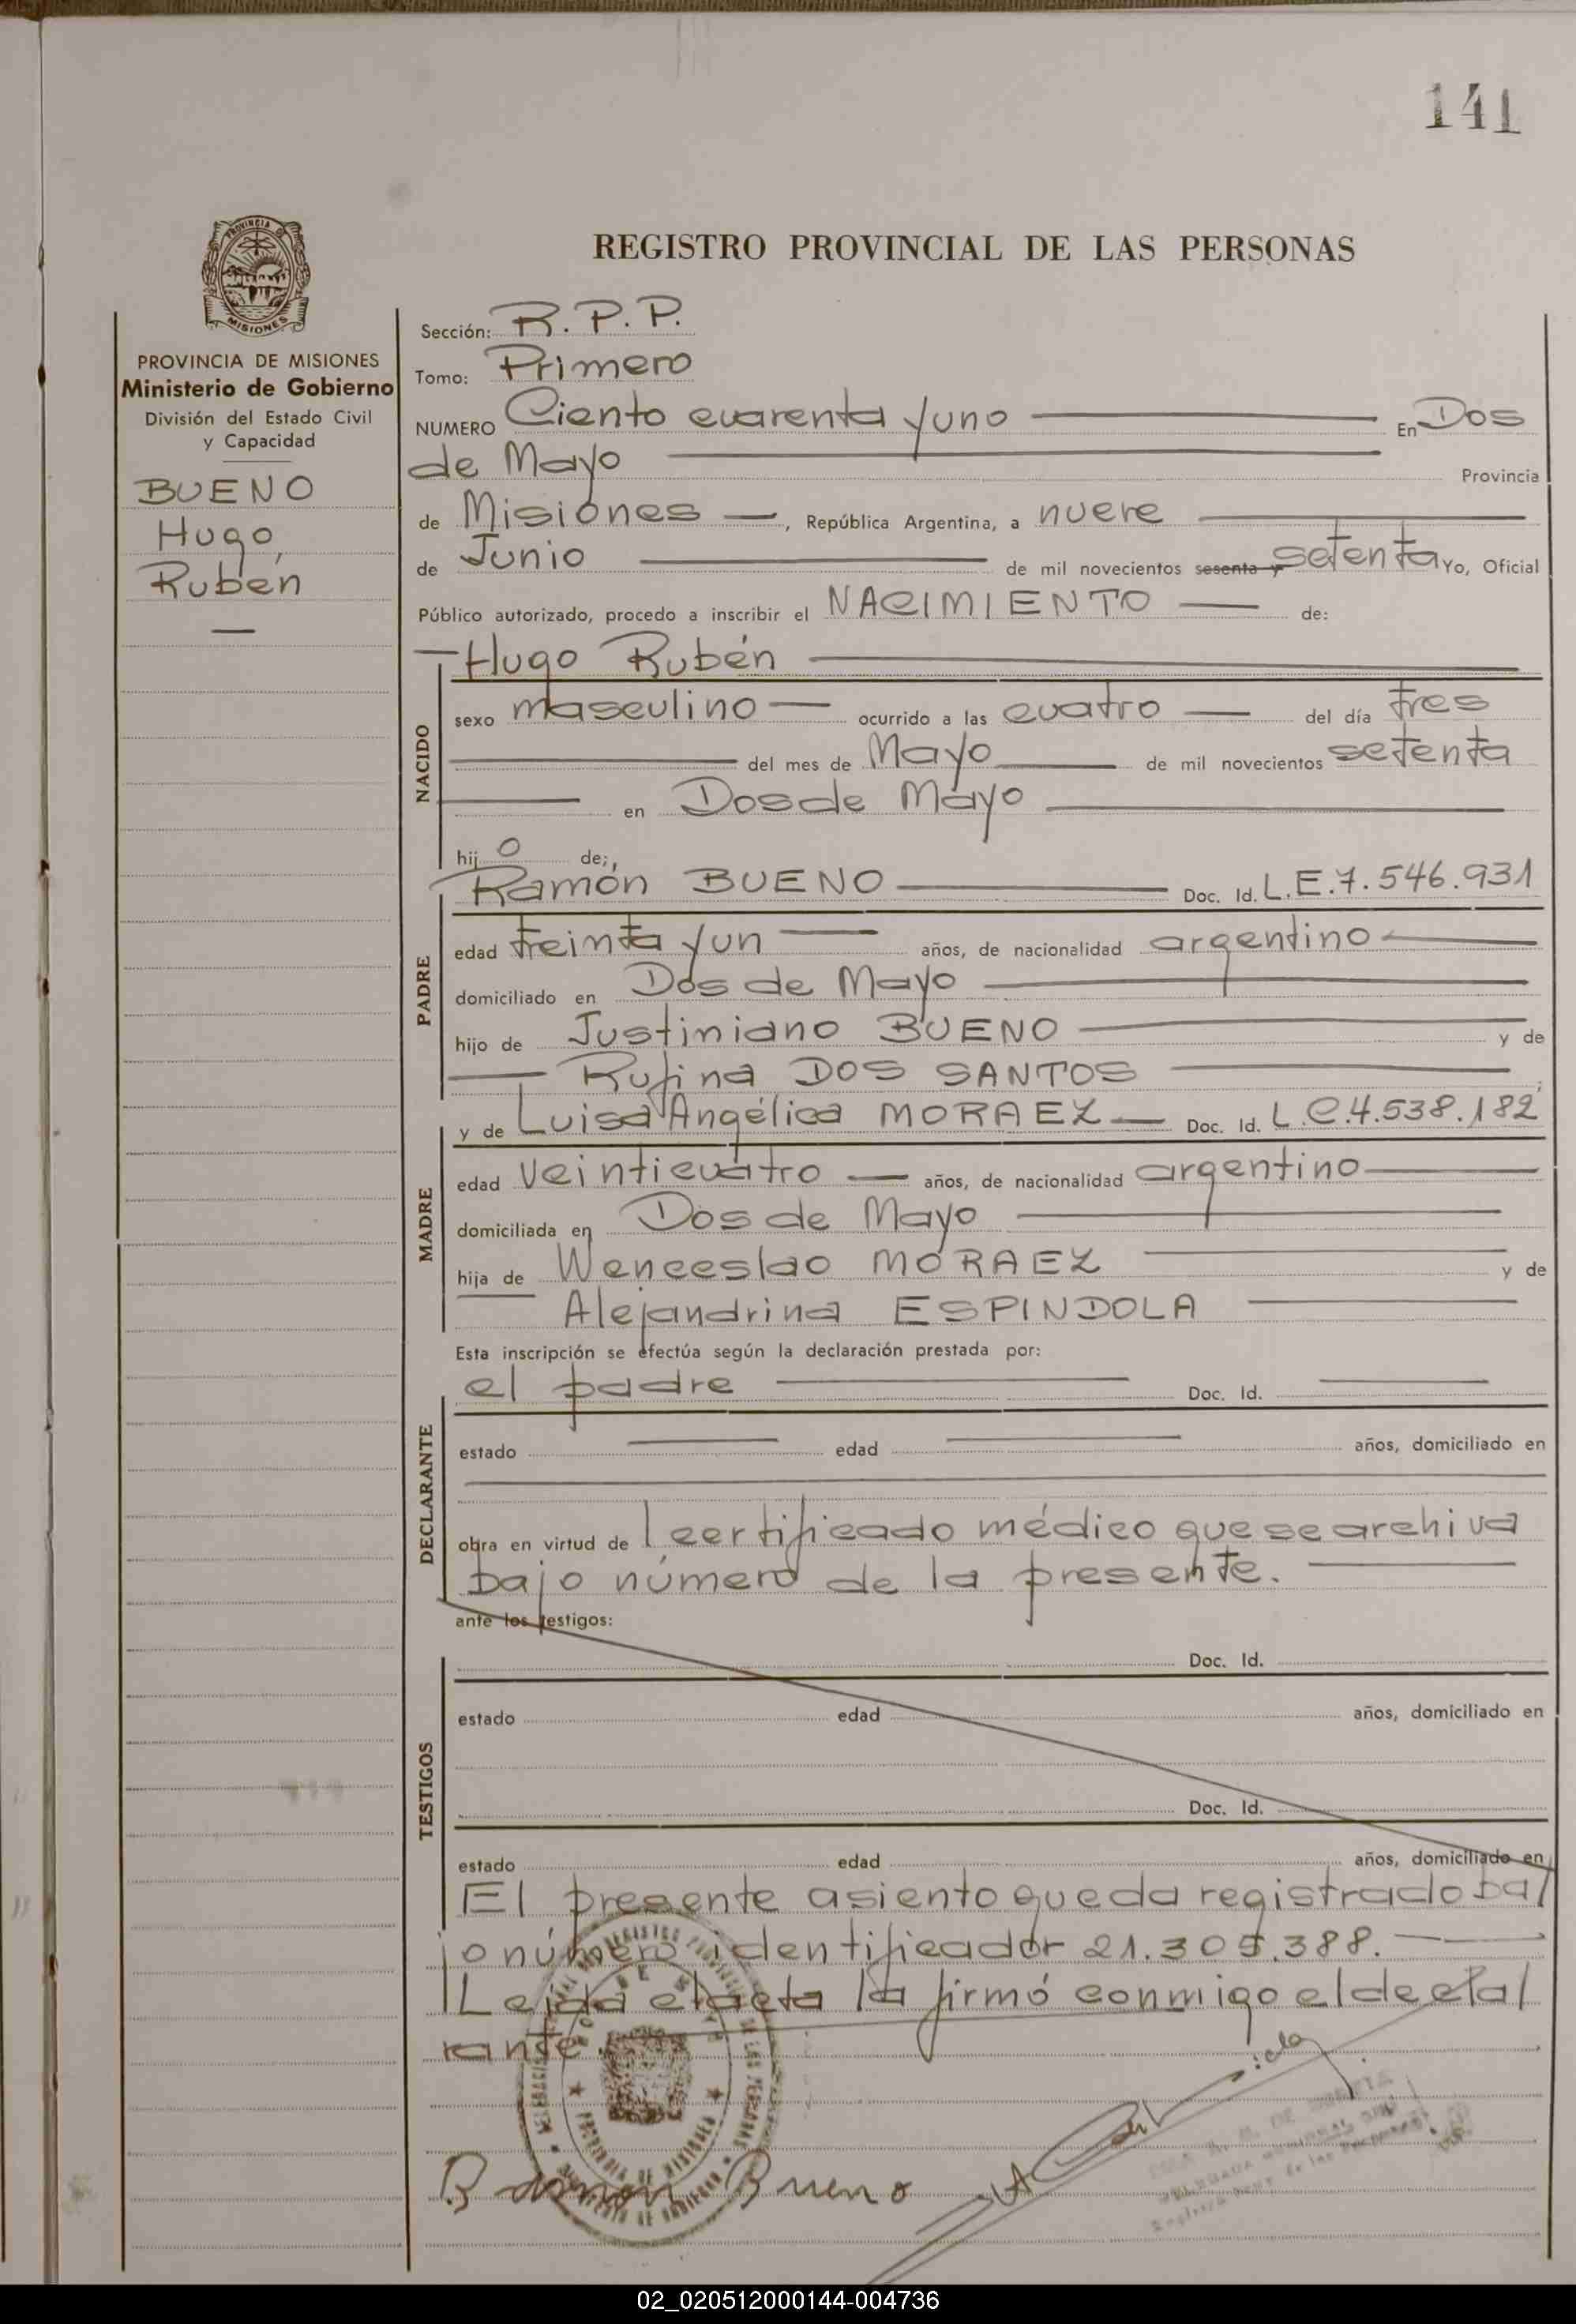 141
PROVINCIA DE
MISIONES
REGISTRO PROVINCIAL DE LAS PERSONAS
PROVINCIA DE MISIONES
Ministerio de Gobierno
División del Estado Civil
y Capacidad
BUENO
Hugo,
Rubén
Sección: R.P.P.
Tomo: Primero
NUMERO Ciento cuarenta y uno En Dos
de Mayo Provincia
de Misiones —, República Argentina, a nueve
de Junio de mil novecientos sesenta y setenta Yo, Oficial
Público autorizado, procedo a inscribir el NACIMIENTO — de:
— Hugo Rubén
NACIDO
sexo masculino — ocurrido a las cuatro — del día tres
del mes de Mayo de mil novecientos setenta
en Dos de Mayo
hij o de;,
Ramón BUENO Doc. Id. L.E.7.546.931
PADRE
edad treinta y un — años, de nacionalidad argentino
domiciliado en Dos de Mayo
hijo de Justiniano BUENO y de
Rufina DOS SANTOS
y de Luisa Angélica MORAEZ — Doc. Id. L.C.4.538.182
MADRE
edad veinticuatro — años, de nacionalidad argentino
domiciliada en Dos de Mayo
hija de Wenceslao MORAEZ y de
Alejandrina ESPINDOLA
Esta inscripción se efectúa según la declaración prestada por:
el padre Doc. Id.
DECLARANTE
estado edad años, domiciliado en
obra en virtud de l certificado médico que se archiva
bajo número de la presente.
ante los testigos:
Doc. Id.
TESTIGOS
estado edad años, domiciliado en
Doc. Id.
estado edad años, domiciliado en
El presente asiento queda registrado ba/
jo número identificador 21.305.388.
/Leida el acta la firmó conmigo el decla/
rante.
Ramón Bueno
02_020512000144-004736